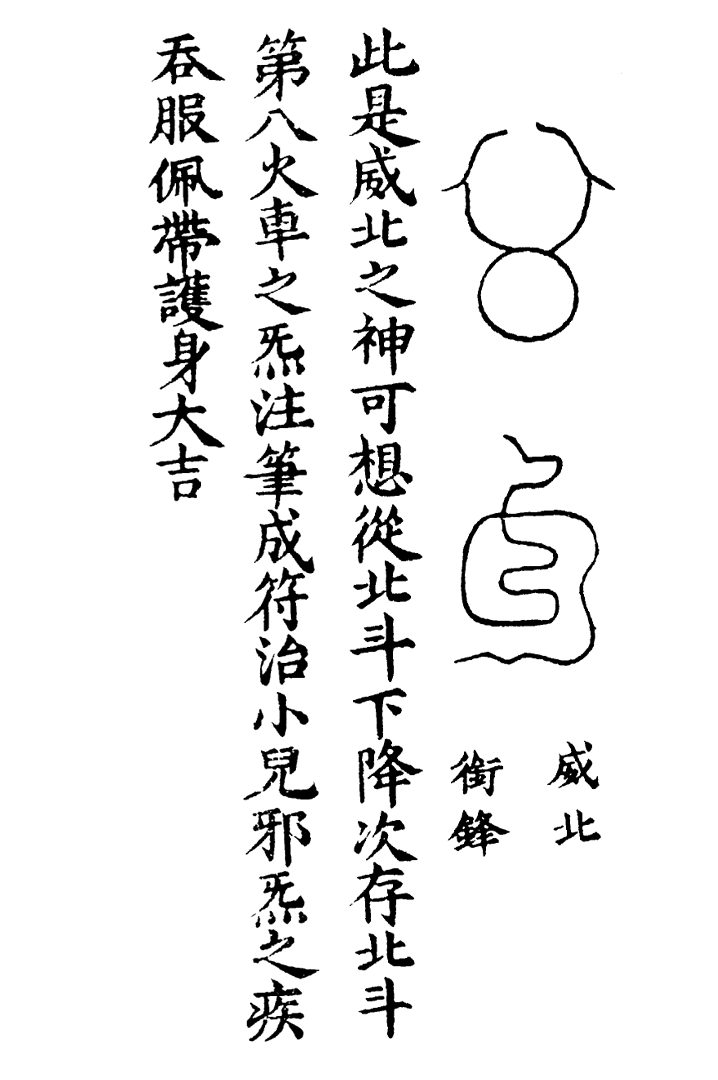 威北
銜鋒
此是威北之神可想從北斗下降次存北斗
第八火車之炁注筆成符治小兒邪炁之疾
吞服佩帶護身大吉